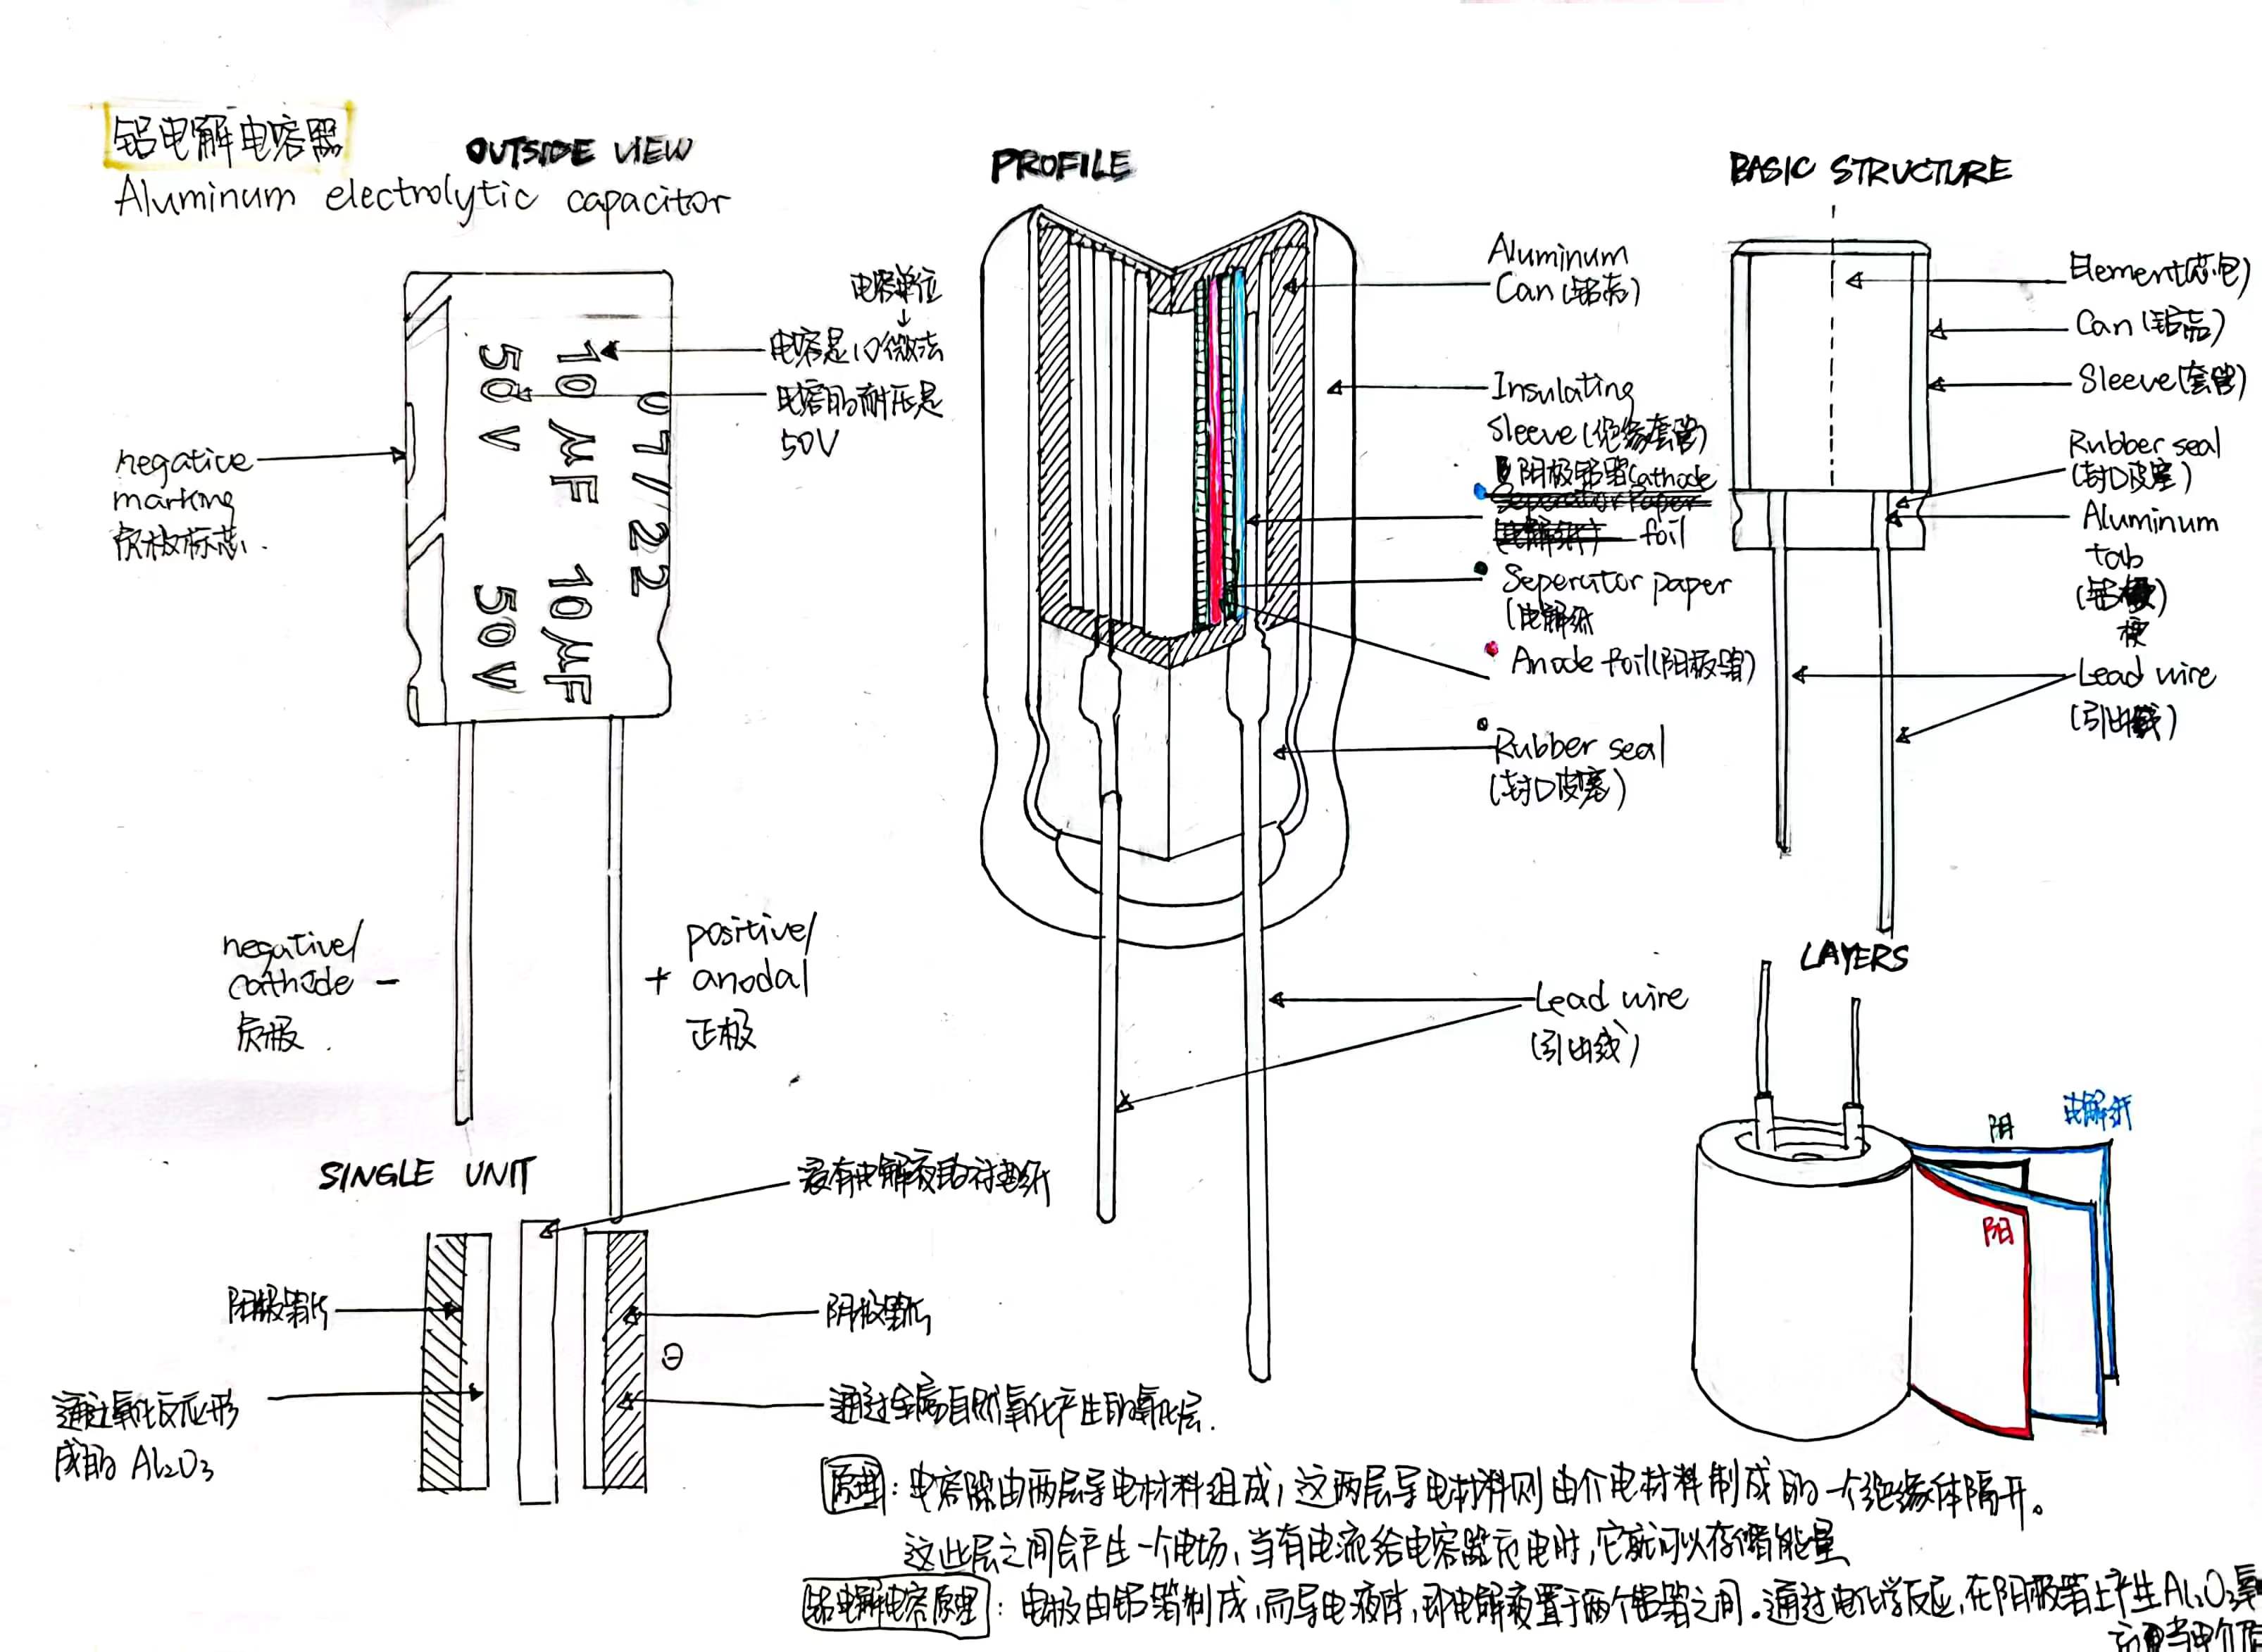 铝电解电容器
Aluminum electrolytic capacitor
OUTSIDE VIEW
50V
10μF
07/22
50V
10μF
电容单位
↓
电容是10微法
电容的耐压是
50V
negative
marking
负极标志.
negative/
cathode -
负极.
positive/
+ anodal
正极
PROFILE
Aluminum
Can (铝壳)
Insulating
Sleeve (绝缘套管)
阴极铝箔Cathode
foil
Seperator paper
(电解纸
Anode foil(阳极箔)
Rubber seal
(封口皮塞)
Lead wire
(引出线)
BASIC STRUCTURE
Element(芯包)
Can (铝壳)
Sleeve(套管)
Rubber seal
(封口皮塞)
Aluminum
tab
(铝梗)
Lead wire
(引出线)
LAYERS
阴
电解纸
阳
SINGLE UNIT
含有电解液的衬垫纸
阳极箔片
阴极箔片
⊖
通过氧化反应形
成的 Al₂O₃
通过金属自然氧化产生的氧化层.
原理：电容器由两层导电材料组成，这两层导电材料则由介电材料制成的一个绝缘体隔开。
这些层之间会产生一个电场，当有电流给电容器充电时，它就可以存储能量
铝电解电容原理：电极由铝箔制成，而导电液体，即电解液置于两个铝箔之间。通过电化学反应，在阳极箔上产生Al₂O₃氧